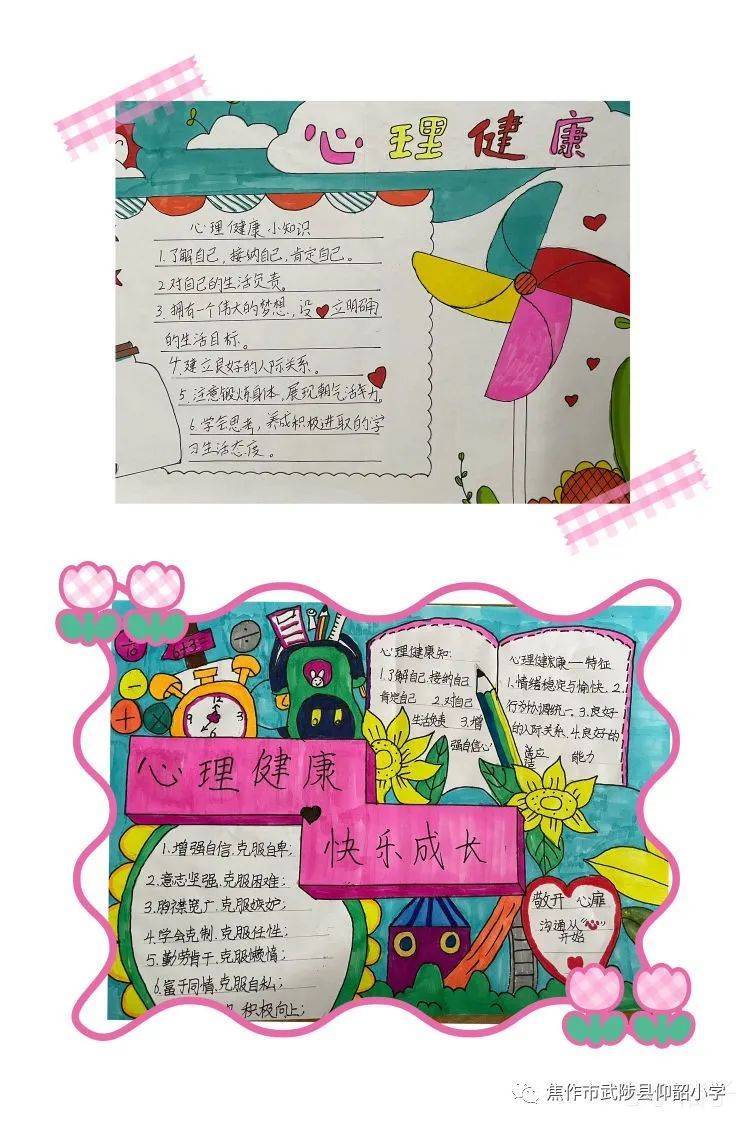 心理健康
心理健康小知识
1.了解自己,接纳自己,肯定自己。
2.对自己的生活负责。
3.拥有一个伟大的梦想,设立明确
的生活目标。
4.建立良好的人际关系。
5.注意锻炼身体,展现朝气活力。
6.学会思考,养成积极进取的学
习生活态度。
心理健康知:
1.了解自己.接纳自己
肯定自己 2.对自己
生活负责 3.增
强自信心
心理健康——特征
1.情绪稳定与愉快.2.
行为协调统一.3.良好
的人际关系.4.良好的
适应 能力
心理健康
快乐成长
1.增强自信.克服自卑;
2.意志坚强.克服困难;
3.胸襟宽广.克服嫉妒;
4.学会克制.克服任性;
5.勤劳肯干.克服懒惰;
6.富于同情.克服自私;
积极向上;
敞开心扉
沟通从“心”
开始
焦作市武陟县仰韶小学